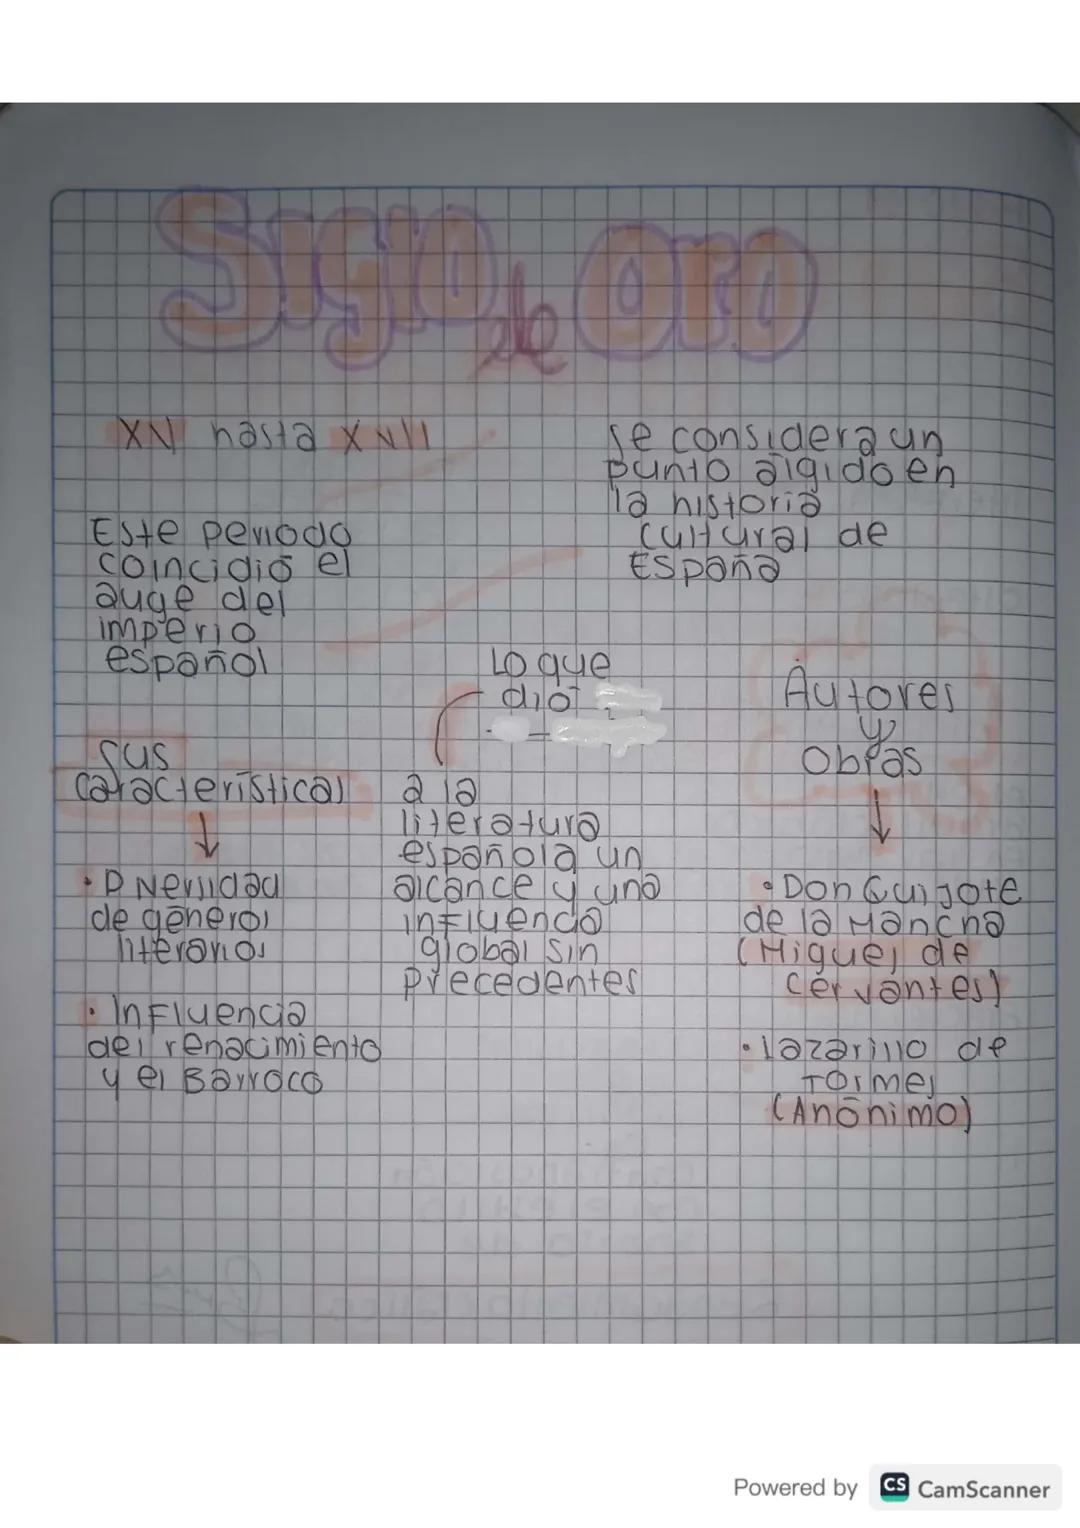 Siglo de Oro
XVI hasta XVII
Se considera un
punto álgido en
la historia
cultural de
España
Este periodo
coincidió el
auge del
imperio
español
Lo que
dió
a la
literatura
española un
alcance y una
influencia
global sin
precedentes
Sus
características
• Diversidad
de géneros
literarios
• Influencia
del renacimiento
y el Barroco
Autores
y
Obras
• Don Quijote
de la Mancha
(Miguel de
Cervantes)
• Lazarillo de
Tormes
(Anónimo)
Powered by CS CamScanner